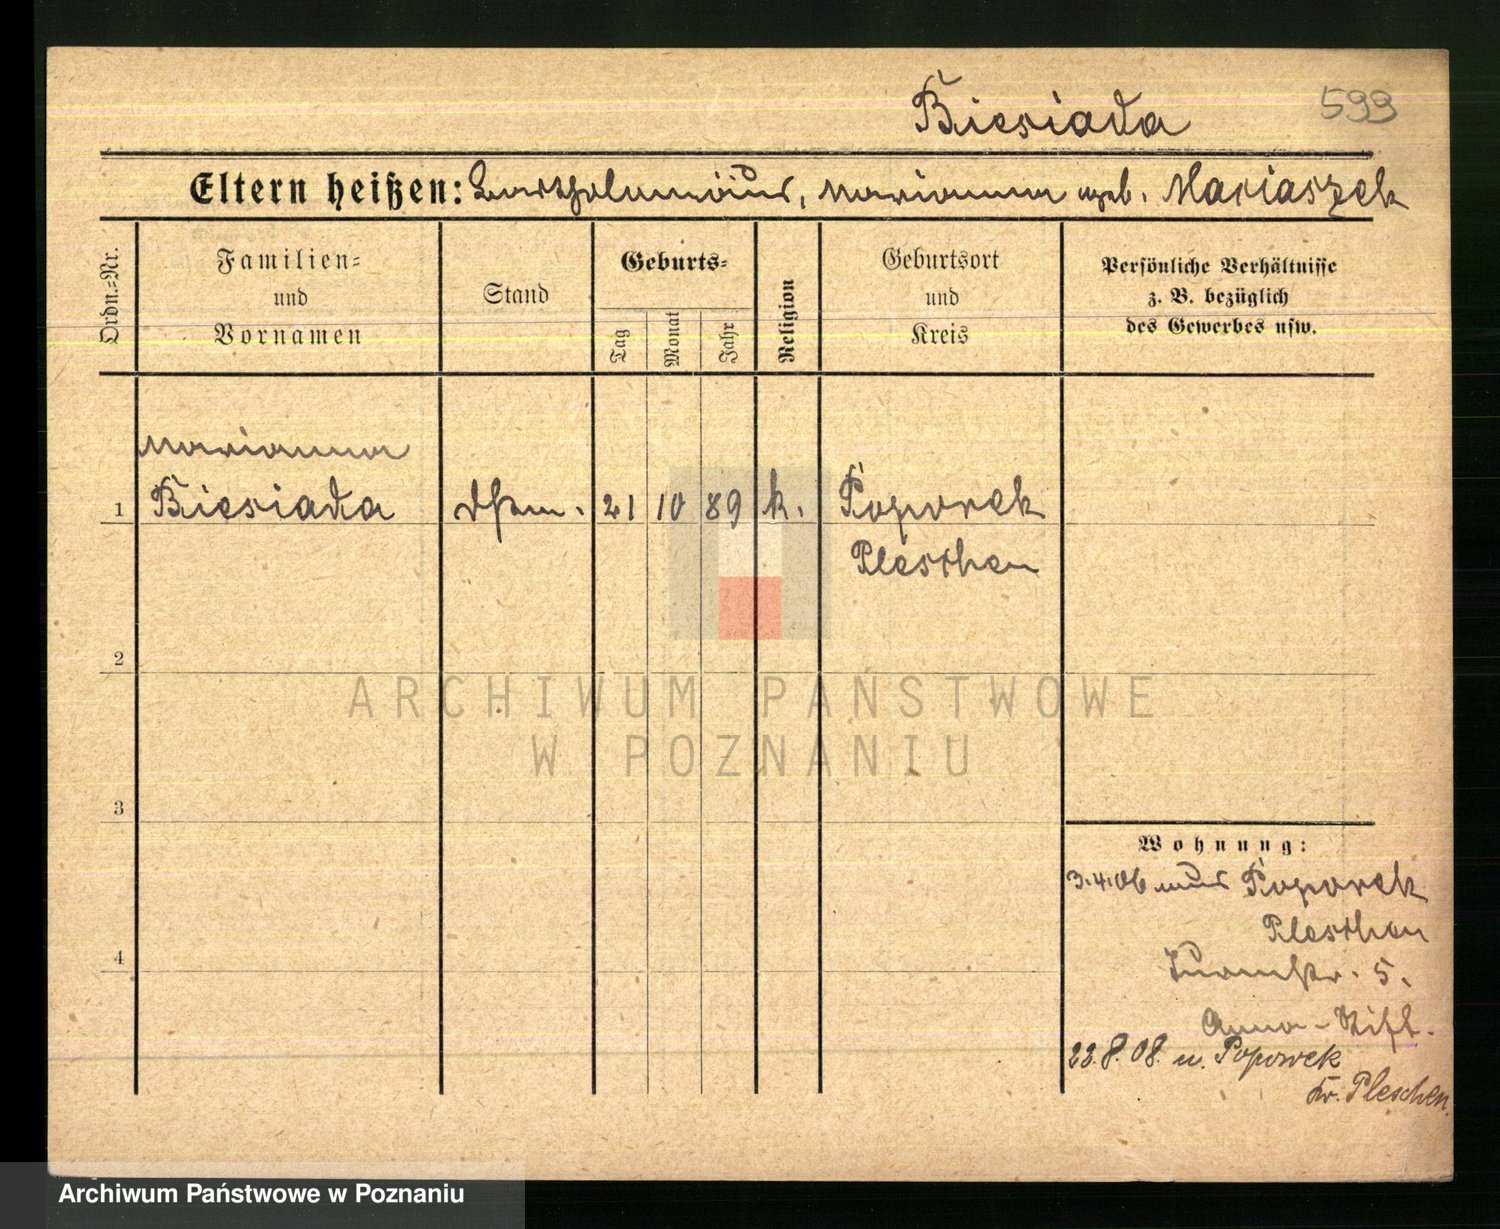 Biesiada
599
Eltern heißen: Bartholomäus, Marianna geb. Maciaszek
Ordn.-Nr.
Familien- und Vornamen
Stand
Geburts-
Tag
Monat
Jahr
Religion
Geburtsort und Kreis
Persönliche Verhältnisse z. B. bezüglich des Gewerbes usw.
Marianna
1 Biesiada 21 10 89 k. Popowek
Pleschen
2
3
4
Wohnung:
3.4.06 aus Popowek
Pleschen
Turmstr. 5.
Anna-Stift.
22.8.08. n. Popowek
Kr. Pleschen.
ARCHIWUM PAŃSTWOWE
W POZNANIU
Archiwum Państwowe w Poznaniu